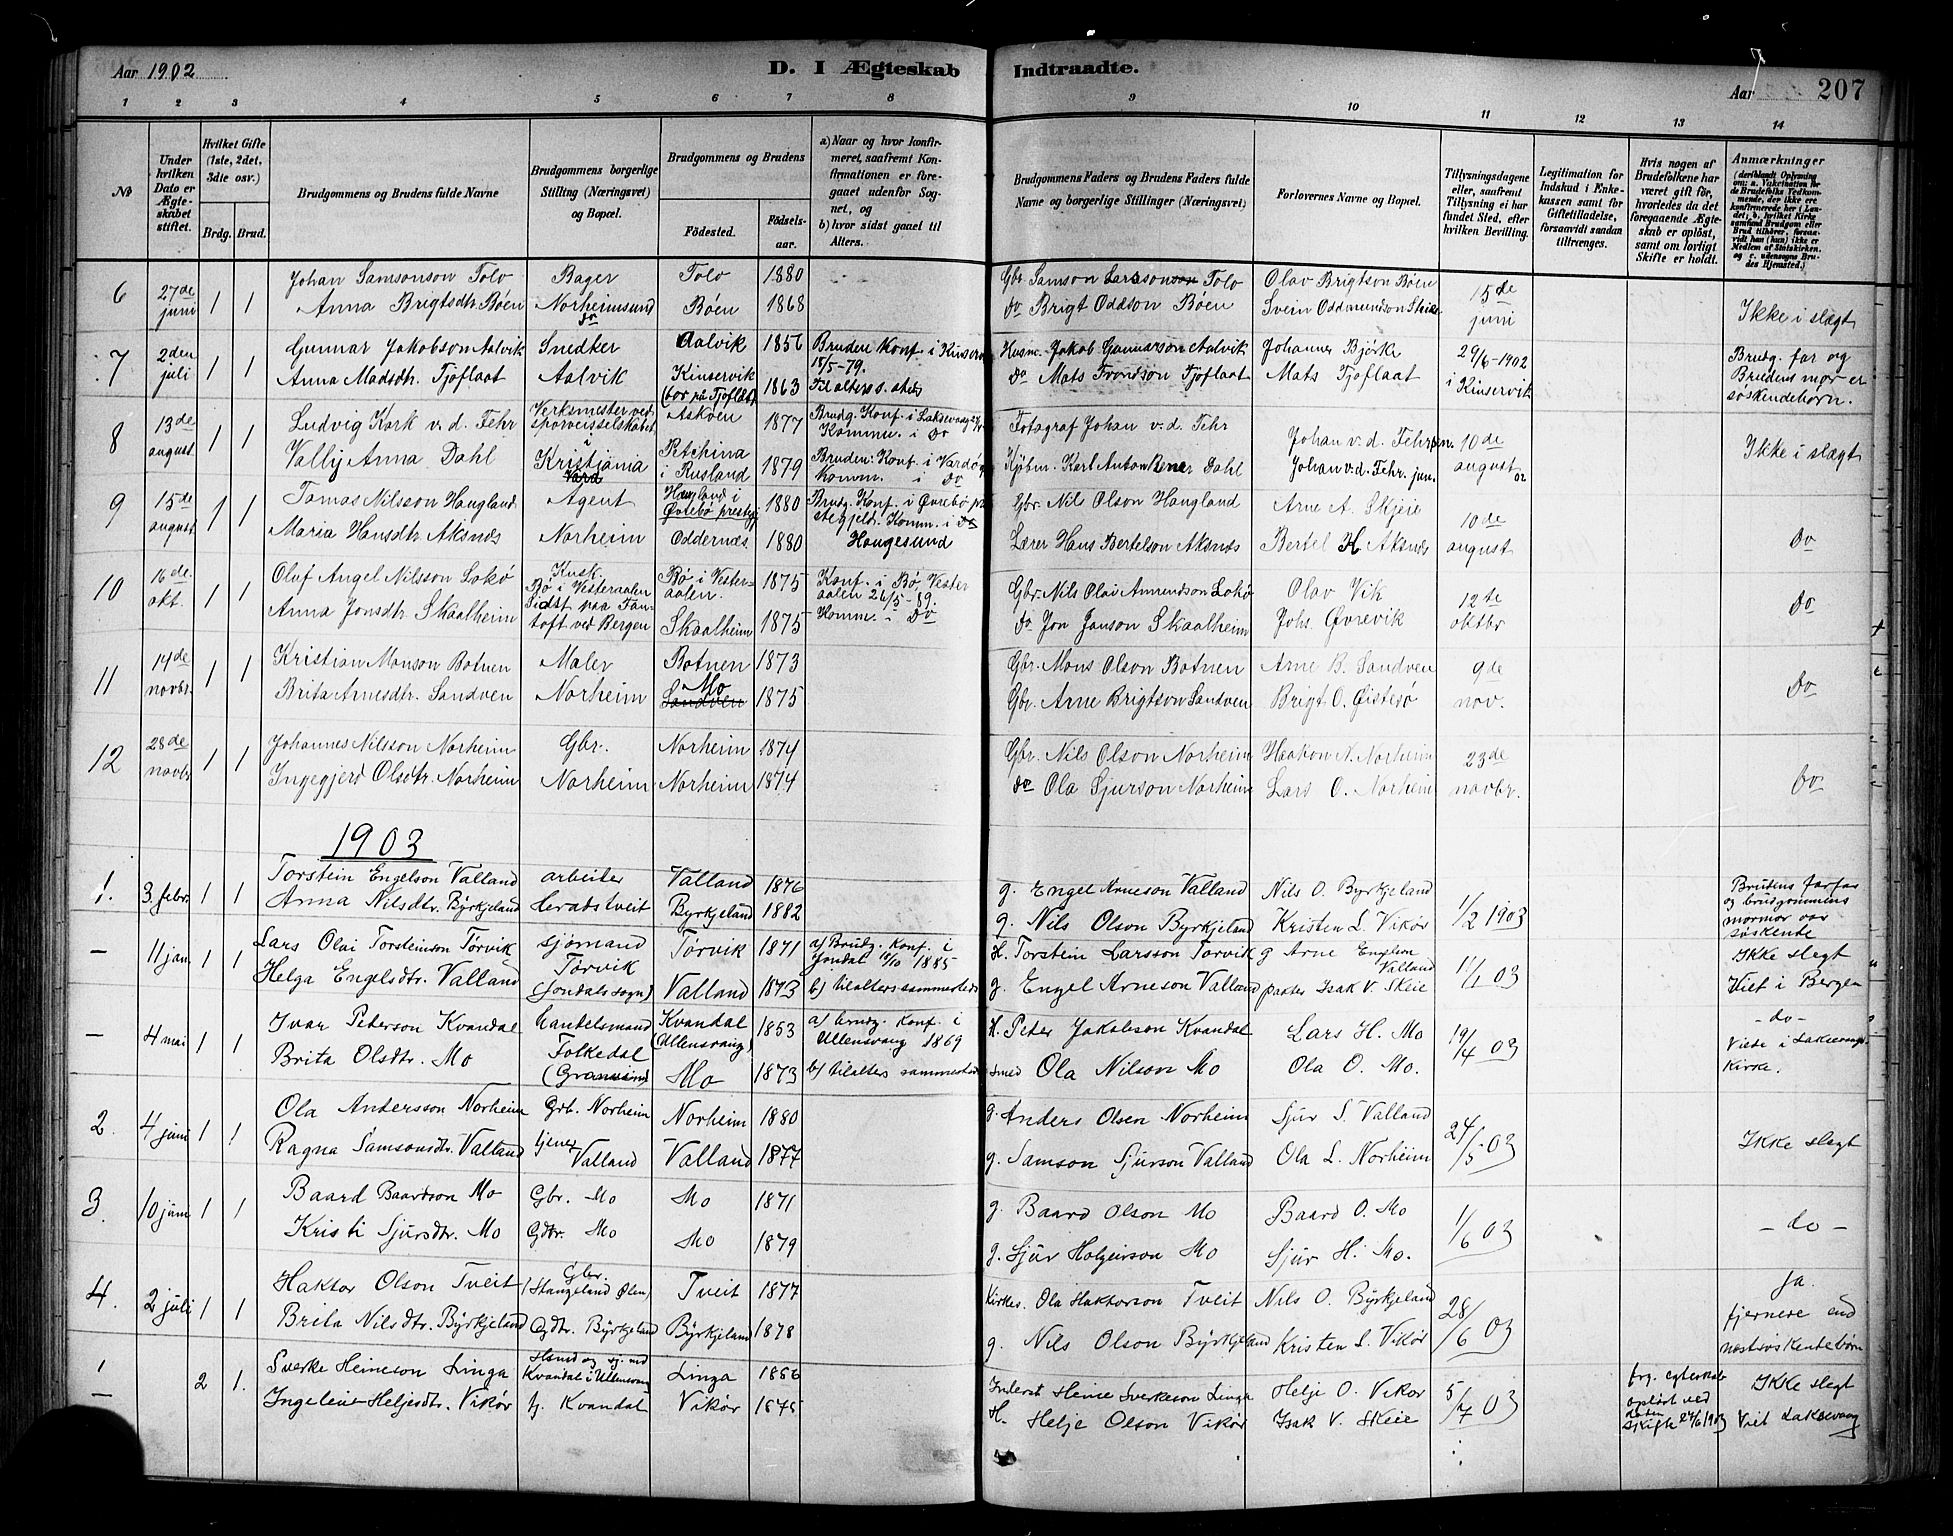 Aar 1902
D. I Ægteskab Indtraadte.
Aar
207
1 2 3 4 5 6 7 8 9 10 11 12 13 14
No
Under hvilken Dato er Ægteskabet stiftet.
Hvilket Gifte (1ste, 2det, 3die osv.)
Brdg. Brud.
Brudgommens og Brudens fulde Navne
Brudgommens borgerlige Stilling (Næringsvei) og Bopæl.
Brudgommens og Brudens
Födested.
Födselsaar.
a) Naar og hvor konfirmeret, saafremt Konfirmationen er foregaaet udenfor Sognet, og
b) hvor sidst gaaet til Alters.
Brudgommens Faders og Brudens Faders fulde Navne og borgerlige Stillinger (Næringsvei)
Forlovernes Navne og Bopæl.
Tillysningsdagene eller, saafremt Tillysning ei har fundet Sted, efter hvilken Bevilling.
Legitimation for Indskud i Enkekassen samt for Giftetilladelse, forsaavidt saadan tiltrænges.
Hvis nogen af Brudefolkene har været gift før, hvorledes da det foregaaende Ægteskab er opløst, samt om lovligt Skifte er holdt.
Anmærkninger
(deriblandt Oplysning om: a. Vakcination for de Brudefolks Vedkommende, der ikke ere konfirmerede her i Landet; b. hvilket Kirkesamfund Brudgom eller Brud tilhører, forsaavidt han (hun) ikke er Medlem af Statskirken, og c. udensogns Brudes Hjemsted.)
6 27de juni 1 1 Johan Samsonson Tolo Bager Tolo 1880 Gbr Samson Larsson Tolo Olav Brigtson Bøen 15de juni Ikke i slægt
Anna Brigtsdtr Bøen Norheimsund do Bøen 1868 do Brigt Oddson Bøen Svein Oddmundson
7 2den juli 1 1 Gunnar Jakobson Aalvik Snedker Aalvik 1856 Bruden Konf. i Kinservik Husm. Jakob Gunnarson Aalvik Johannes Bjørke 29/6-1902 Brudg. far og
Anna Madsdtr. Tjoflaat Aalvik Kinservik (bor på Tjoflåt) 1863 15/5-79. Til alters s. steds do Mats Trondson Tjoflaat Mats Tjoflaat i Kinservik Brudens mor er søskendebørn.
8 13de august 1 1 Ludvig Kork v. d. Fehr Verksmester ved sporveisselskabet Askøen 1877 Brudg. Konf. i Laksevaag Komm. i do Fotograf Johan v. d. Fehr Johan v. d. Fehr sen. 10de august Ikke i slægt
Vally Anna Dahl i Kristiania Petchina i Rusland 1879 Bruden: Konf. i Vardø Komm. i do Kjøbm. Karl Anton Dahl Johan v. d. Fehr. jun. 02
9 15de august 1 1 Tomas Nilsson Haugland Agent Haugland i Øvrebø prestegj. 1880 Brudg. Konf. i Øvrebø prstegjeld. Komm. i do Gbr. Nils Olson Haugland Arne A. Skjeie 10de august do
Maria Hansdtr Aksnes Norheim Oddernes 1880 Haugesund Lærer Hans Bertelson Aksnes Bertel H Aksnes
10 16de. okt. 1 1 Oluf Angel Nilsson Lokø Kusk. Bø i Vesteraalen Bø i Vesteraalen. 1875 Konf. i Bø Vesteraalen 26/5-89. Gbr. Nils Olai Amundson Lokø Olav Vik 12te oktbr do
Anna Jonsdtr Skaalheim Sidst paa Fantoft ved Bergen Skaalheim 1875 Komm. - do do Jon Janson Skaalheim Johs. Øvrevik
11 14de novbr. 1 1 Kristian Monson Botnen Maler Botnen 1873 Gbr. Mons Olson Botnen Arne B. Sandven 9de nov. do
Brita Arnesdtr. Sandven Norheim Mo Sandven 1875 Gbr. Arne Brigtson Sandven Brigt O. Øistesø
12 28de novbr 1 1 Johannes Nilsson Norheim Gbr. Norheim 1874 Gbr. Nils Olson Norheim Haakon N. Norheim 23de novbr. do
Ingegjerd Olsdtr. Norheim Norheim Norheim 1874 do Ola Sjurson Norheim Lars O. Norheim
1903
1. 3. febr. 1 1 Torstein Engelson Valland arbeider Valland 1876 g. Engel Arneson Valland Nils O. Byrkjeland 1/2 1903 Brudens farfar
Anna Nilsdtr. Byrkjeland Heradstveit Byrkjeland 1882 g. Nils Olson Byrkjeland Kristen L. Vikør og brudgommens mormor var søskende
– 11 jan. 1 1 Lars Olai Torsteinson Tørvik sjømand Tørvik 1871 a) Brudg. Konf. i Jondal /10 1885 H. Torstein Larsson Tørvik g Arne Engelson Valland 11/1 03 Ikke slegt
Helga Engelsdtr. Valland Tørvik (Jondals sogn) Valland 1873 b) tilalters sammesteds g. Engel Arneson Valland Isak V. Skeie Viet i Bergen
– 4 mai 1 1 Ivar Peterson Kvandal Handelsmand Kvandal (Ullensvang) 1853 a) brudg. Konf. i Ullensvang 1869 H. Peter Jakobson Kvandal Lars H. Mo 19/4 03 – do – Viede i Laksevaags Kirke.
Brita Olsdtr. Mo Folkedal (Granvin) Mo 1873 b) tilalters sammesteds smed Ola Nilson Mo Ola O. Mo.
2. 4 juni 1 1 Ola Andersson Norheim Grb. Norheim Norheim 1880 g. Anders Olsen Norheim Sjur S. Valland 24/5 03 Ikke slegt
Ragna Samsonsdtr. Valland tjener Valland Valland 1877 g. Samson Sjurson Valland Ola L. Norheim
3. 10 juni 1 1 Baard Baardson Mo Gbr. Mo Mo 1871 g. Baard Olson Mo Baard O. Mo 1/6 03 – do –
Kristi Sjursdtr. Mo Gdtr. Mo Mo 1879 g. Sjur Holgeirson Mo Sjur H. Mo.
4. 2 juli 1 1 Haktor Olson Tveit Gbr. (Stangeland Ølen) Tveit 1877 Kirkes. Ola Haktorson Tveit Nils O. Byrkjeland 28/6 03 ja. fjernere end
Brita Nilsdtr. Byrkjeland Gdtr. Byrkjeland Byrkjeland 1878 g. Nils Olson Byrkjeland Kristen L. Vikør næstsøskendebørn
1 – 2 1. Sverke Heineson Linga Kvandal i Ullensvang Linga 1856 Inderst Heine Sverkeson Linga Helje O. Vikør 5/7 03 frg. egteskab opløst ved Ikke slegt
Ingeleiv Heljesdtr. Vikør tj. Kvandal Vikør 1875 H. Helje Olson Vikør Isak V. Skeie Skifte 24/6 1903 Viet Laksevaag